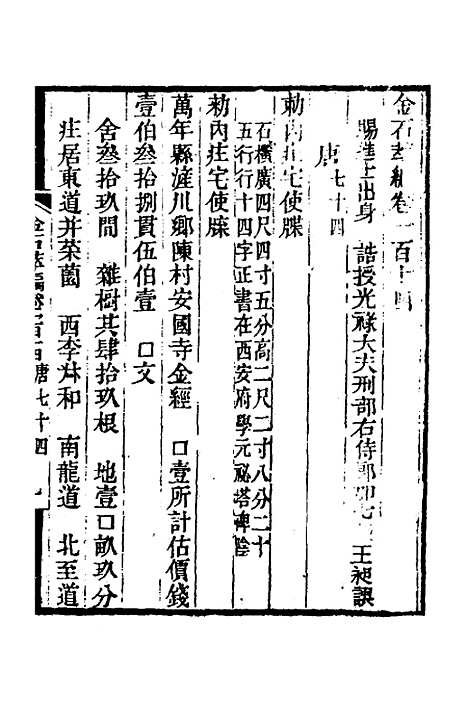 金石萃編卷一百十四
賜進士出身　誥授光祿大夫刑部右侍郎加七級王昶譔
唐七十四
勅內庄宅使牒
石橫廣四尺四寸五分高二尺二寸八分二十
五行行十四字正書在西安府學元祕塔碑陰
勅內庄宅使牒
萬年縣滻川鄉陳村安國寺金經　口壹所計估價錢
壹伯叁拾捌貫伍伯壹　口文
舍叁拾玖間　雜樹共肆拾玖根　地壹口畝玖分
庄居東道并菜薗　西李升和　南龍道　北至道
金石萃編卷一百十四唐七十四　一